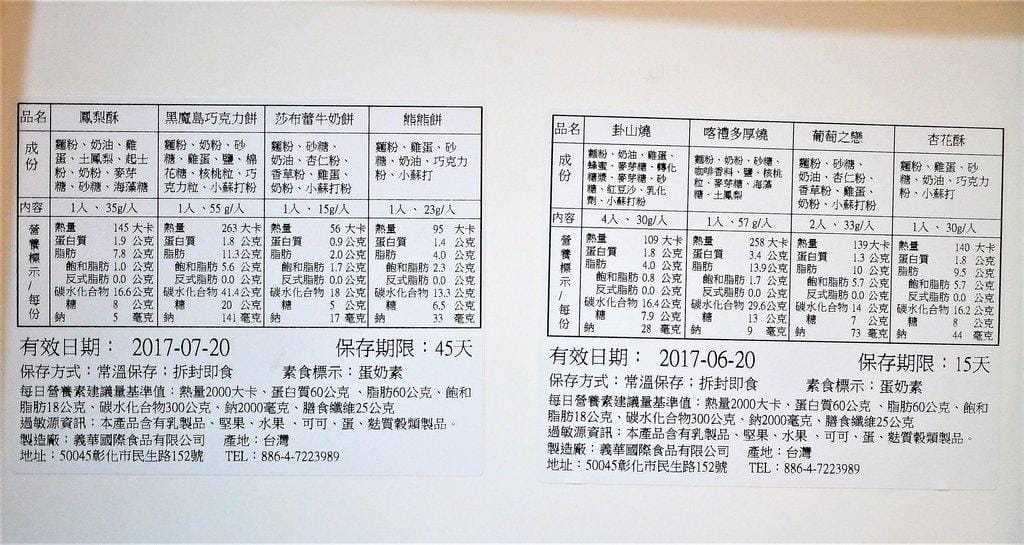 品名 鳳梨酥 黑魔島巧克力餅 莎布蕾牛奶餅 熊熊餅
成份
麵粉、奶油、雞
蛋、土鳳梨、起士
粉、奶粉、麥芽
糖、砂糖、海藻糖
麵粉、奶粉、砂
糖、雞蛋、鹽、棉
花糖、核桃粒、巧
克力粒、小蘇打粉
麵粉、砂糖、
奶油、杏仁粉、
香草粉、雞蛋、
奶粉、小蘇打粉
麵粉、雞蛋、砂
糖、奶油、巧克力
粉、小蘇打
內容 1人、35g/人 1人、55 g/人 1人、15g/人 1人、23g/人
營養標示/每份
熱量 145 大卡 263 大卡 熱量 56 大卡 熱量 95 大卡
蛋白質 1.9 公克 蛋白質 1.8 公克 蛋白質 0.9 公克 蛋白質 1.4 公克
脂肪 7.8 公克 脂肪 11.3公克 脂肪 2.0公克 脂肪 4.0 公克
飽和脂肪 1.0 公克 飽和脂肪 5.6 公克 飽和脂肪 1.7公克 飽和脂肪 2.3 公克
反式脂肪 0.0 公克 反式脂肪 0.0 公克 反式脂肪 0.0 公克 反式脂肪 0.0 公克
碳水化合物 16.6公克 碳水化合物 41.4公克 碳水化合物 18 公克 碳水化合物 13.3 公克
糖 8 公克 糖 20 公克 糖 5 公克 糖 6.5 公克
鈉 5 毫克 鈉 141 毫克 鈉 17 毫克 鈉 33 毫克
有效日期： 2017-07-20 保存期限：45天
保存方式：常溫保存；拆封即食 素食標示：蛋奶素
每日營養素建議量基準值：熱量2000大卡、蛋白質60公克 、脂肪60公克、飽和
脂肪18公克、碳水化合物300公克、鈉2000毫克、膳食纖維25公克
過敏源資訊：本產品含有乳製品、堅果、水果 、可可、蛋、麩質穀類製品。
製造廠：義華國際食品有限公司 產地：台灣
地址：50045彰化市民生路152號 TEL：886-4-7223989
品名 卦山燒 喀禮多厚燒 葡萄之戀 杏花酥
成份
麵粉、奶油、雞蛋、
蜂蜜、麥芽糖、轉化
糖漿、麥芽糖、砂
糖、紅豆沙、乳化
劑、小蘇打粉
麵粉、奶粉、砂糖、
咖啡香料、鹽、核桃
粒、麥芽糖、海藻
糖、土鳳梨
麵粉、砂糖、
奶油、杏仁粉、
香草粉、雞蛋、
奶粉、小蘇打粉
麵粉、雞蛋、砂
糖、奶油、巧克力
粉、小蘇打
內容 4人、30g/人 1人、57 g/人 2人、33g/人 1人、30g/人
營養標示/每份
熱量 109 大卡 熱量 258 大卡 熱量 139大卡 熱量 140 大卡
蛋白質 1.8 公克 蛋白質 3.4 公克 蛋白質 1.3 公克 蛋白質 1.8 公克
脂肪 4.0 公克 脂肪 13.9公克 脂肪 10 公克 脂肪 9.5 公克
飽和脂肪 0.8 公克 飽和脂肪 1.7 公克 飽和脂肪 5.7 公克 飽和脂肪 5.7 公克
反式脂肪 0.0 公克 反式脂肪 0.0 公克 反式脂肪 0.0 公克 反式脂肪 0.0 公克
碳水化合物 16.4公克 碳水化合物 29.6公克 碳水化合物 14 公克 碳水化合物 16.2 公克
糖 7.9 公克 糖 13 公克 糖 7 公克 糖 8 公克
鈉 28 毫克 鈉 9 毫克 鈉 73 毫克 鈉 44 毫克
有效日期： 2017-06-20 保存期限：15天
保存方式：常溫保存；拆封即食 素食標示：蛋奶素
每日營養素建議量基準值：熱量2000大卡、蛋白質60公克 、脂肪60公克、飽和
脂肪18公克、碳水化合物300公克、鈉2000毫克、膳食纖維25公克
過敏源資訊：本產品含有乳製品、堅果、水果 、可可、蛋、麩質穀類製品。
製造廠：義華國際食品有限公司 產地：台灣
地址：50045彰化市民生路152號 TEL：886-4-7223989